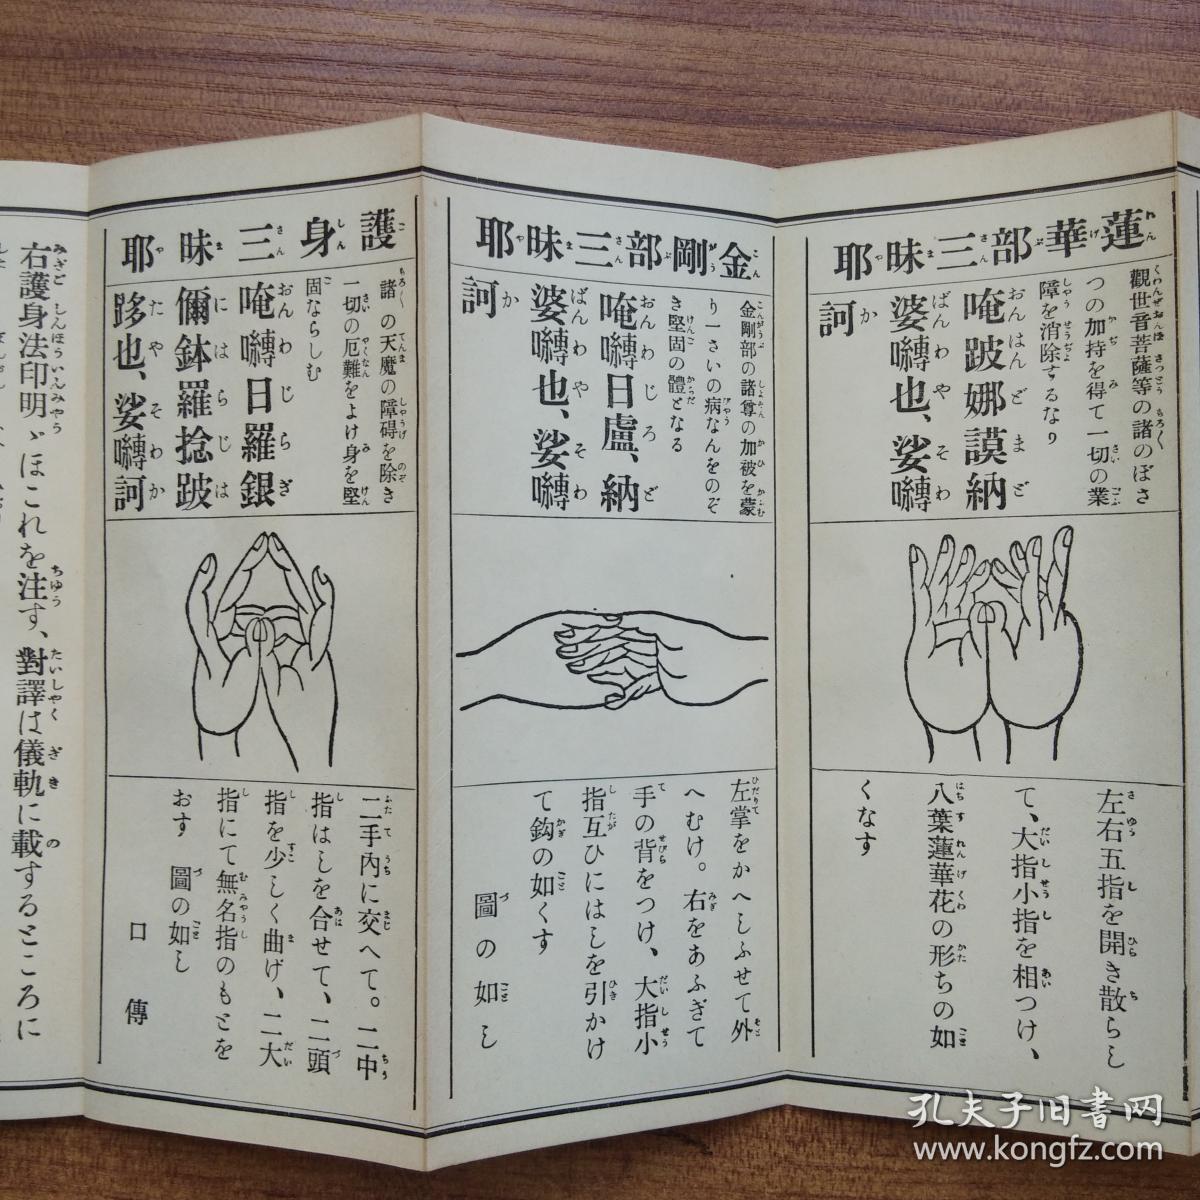 蓮華部三昧耶
觀世音菩薩等の諸のぼさ
つの加持を得て一切の業
障を消除するなり
唵跛娜謨納
婆嚩也、娑嚩
訶
左右五指を開き散らし
て、大指小指を相つけ、
八葉蓮華花の形ちの如
くなす
金剛部三昧耶
金剛部の諸尊の加被を蒙
り一さいの病なんをのぞ
き堅固の體となる
唵嚩日盧、納
婆嚩也、娑嚩
訶
左掌をかへしふせて外
へむけ。右をあふぎて
手の背をつけ、大指小
指互ひにはしを引かけ
て鈎の如くす
圖の如し
護身三昧耶
諸の天魔の障碍を除き
一切の厄難をよけ身を堅
固ならしむ
唵嚩日羅銀
儞鉢羅捻跛
跢也、娑嚩訶
二手內に交へて。二中
指はしを合せて、二頭
指を少しく曲げ、二大
指にて無名指のもとを
おす 圖の如し
口傳
右護身法印明ゞほこれを注す、對譯は儀軌に載するところに
孔夫子旧书网
www.kongfz.com